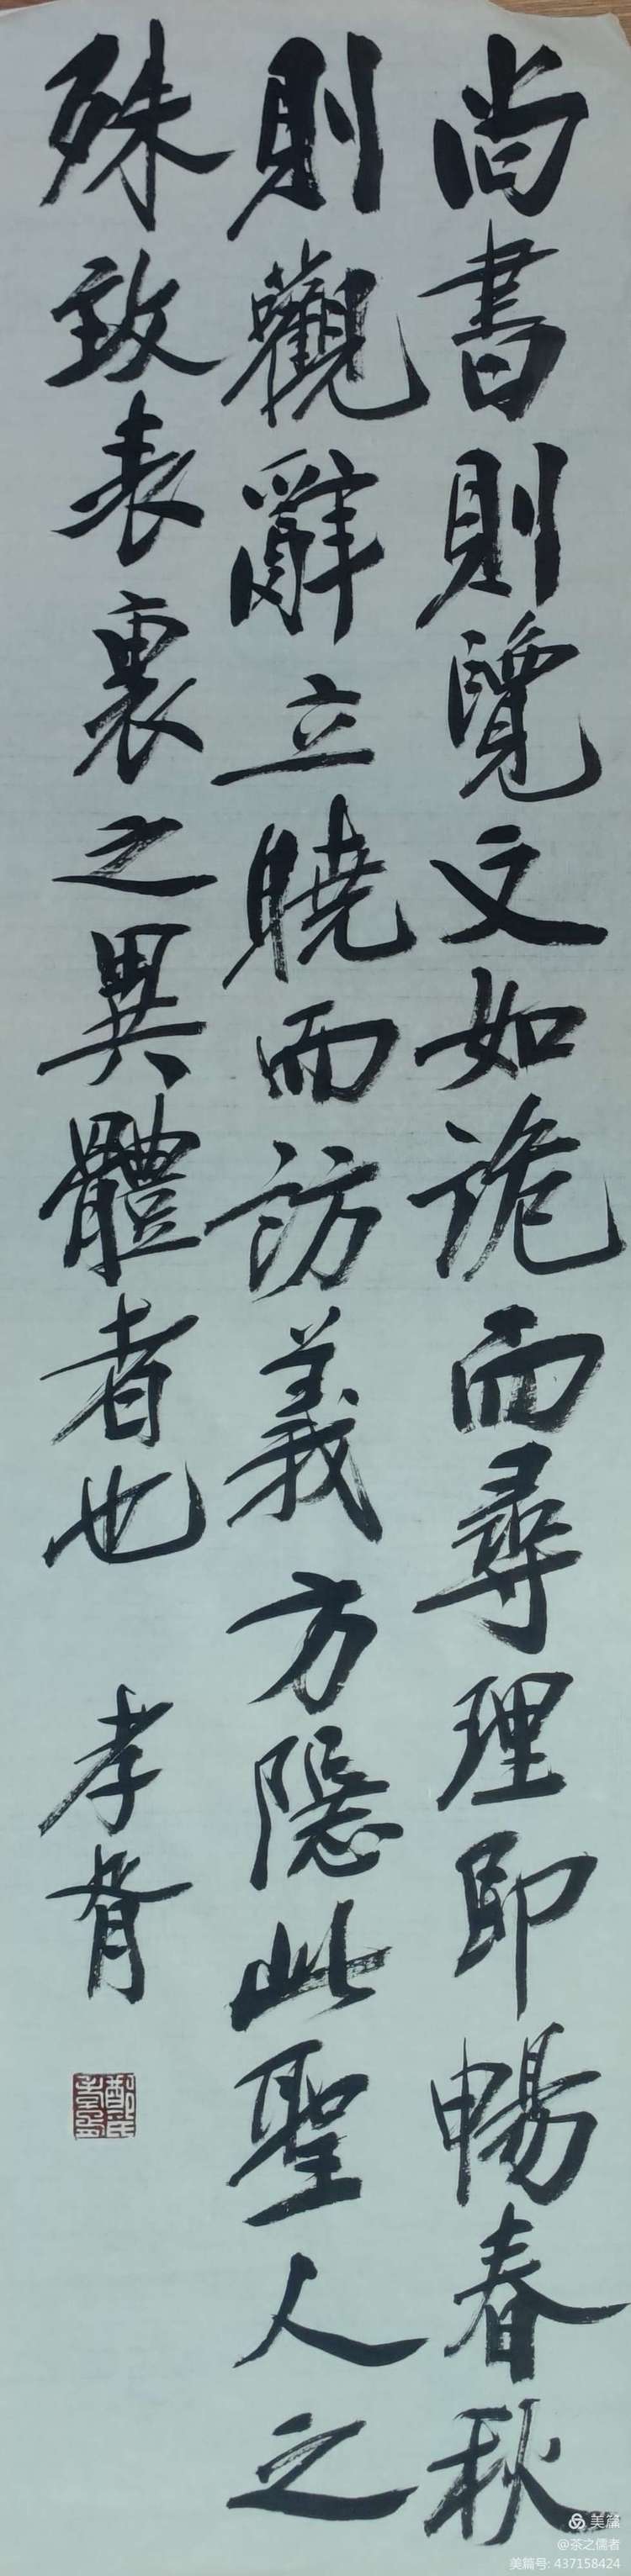 尚書則覽文如詭而尋理即暢春秋
則觀辭立曉而訪義方隱此聖人之
殊致表裏之異體者也
孝胥
美篇
@茶之儒者
美篇号: 437158424